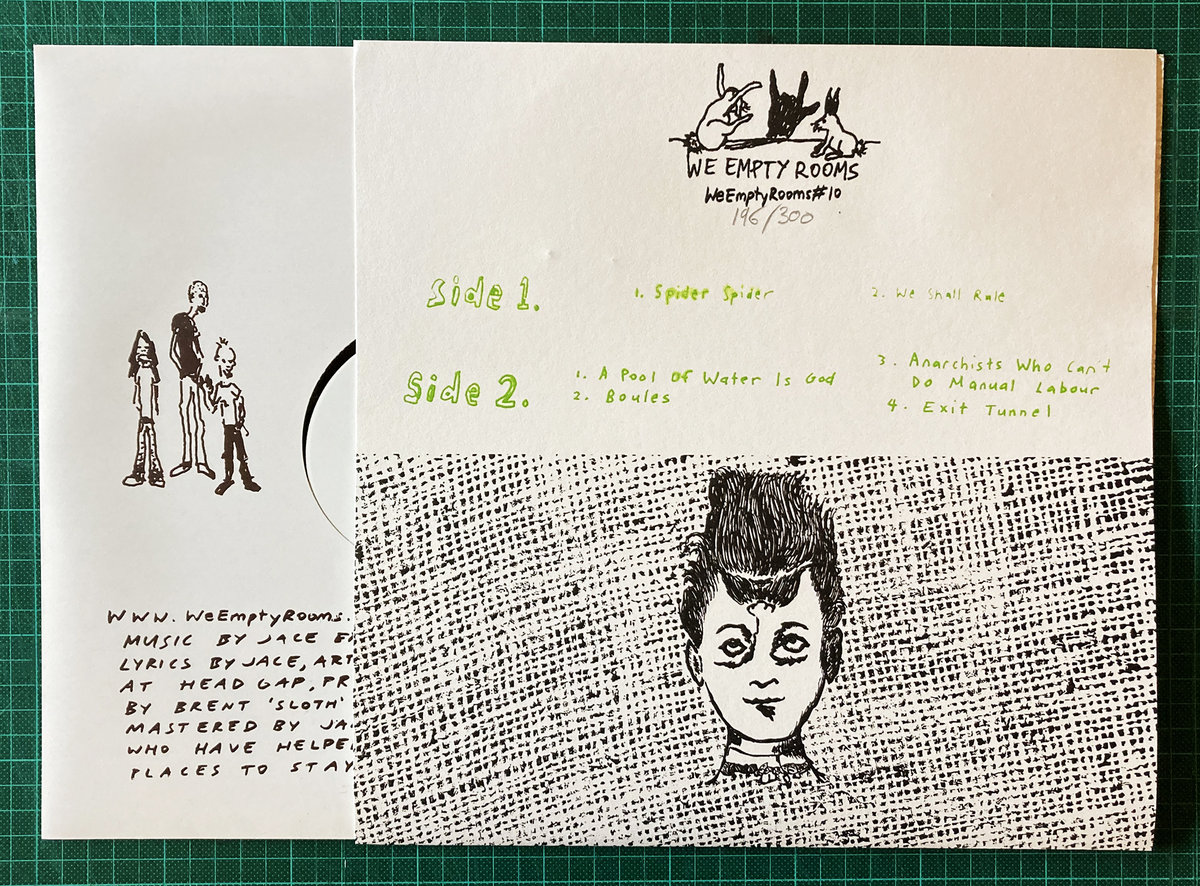 WE EMPTY ROOMS
WeEmptyRooms#10
196/300
Side 1.
1. Spider Spider
2. We Shall Rule
Side 2.
1. A Pool Of Water Is God
2. Boules
3. Anarchists Who Can't
Do Manual Labour
4. Exit Tunnel
WWW.WeEmptyRooms.
MUSIC BY JACE
LYRICS BY JACE, ART
AT HEAD GAP, PR
BY BRENT 'SLOTH'
MASTERED BY JA
WHO HAVE HELPE
PLACES TO STAY